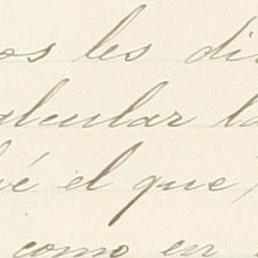 os les di
alcular la
é el que
como en